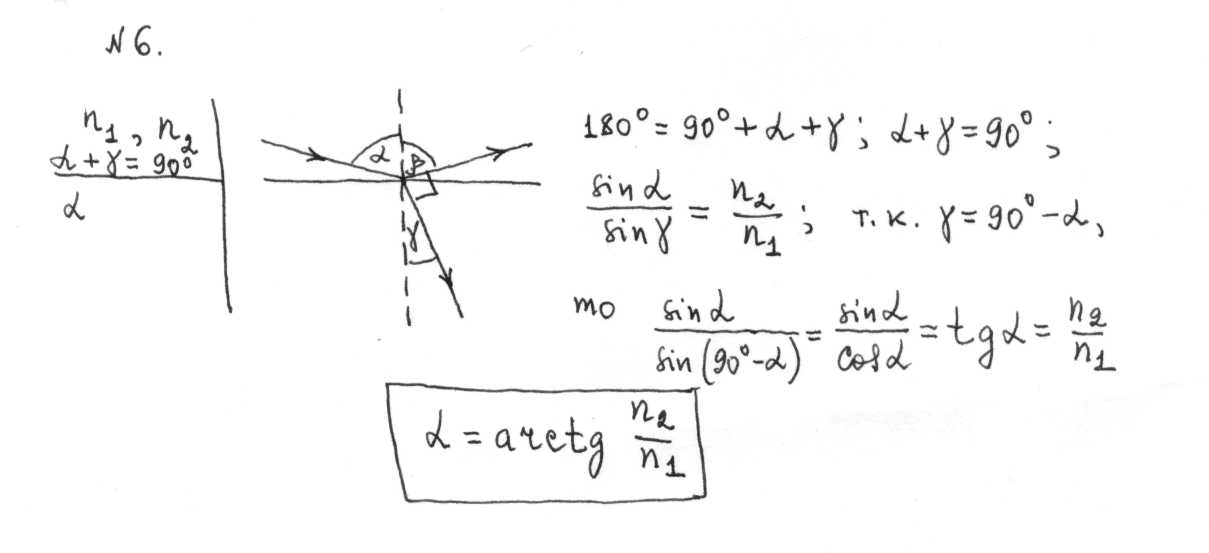 N 6.
n₁, n₂
α + γ = 90°
α
α β
γ
180° = 90° + α + γ; α + γ = 90°;
sin α / sin γ = n₂ / n₁; т. к. γ = 90° - α,
то sin α / sin (90° - α) = sin α / cos α = tg α = n₂ / n₁
α = arctg n₂ / n₁